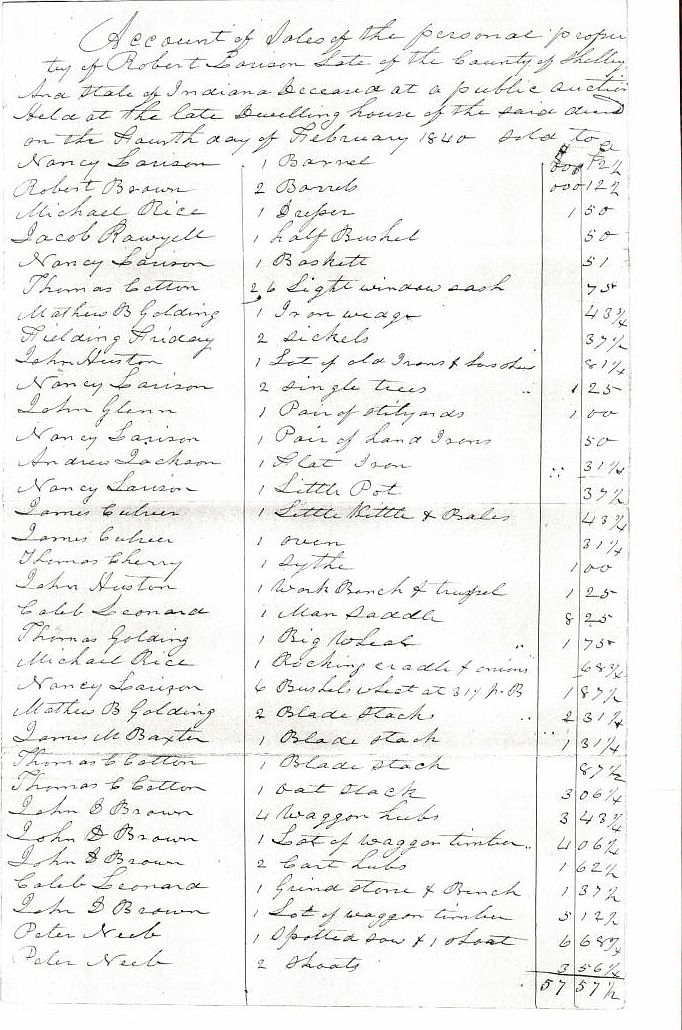 Account of Sales of the personal proper
ty of Robert Larison Late of the County of Shelby
And State of Indiana Deceased at a public auction
Held at the late Dwelling house of the said decd
on the Fourth day of February 1840 sold to
Nancy Larison 1 Barrel 000 12½
Robert Brown 2 Barrels 000 12½
Michael Rice 1 50
Jacob 1 half Bushel 50
Nancy Larison 1 Baskett 51
Thomas Cotton 2 6 Light window sash 75
Mathew B Golding 1 Iron wedge 43¾
Fielding Friday 2 sickels 37½
John Huston 1 Lot of old Irons & 81¼
Nancy Larison 2 single trees 1 25
John Glenn 1 Pair of stilyards 1 00
Nancy Larison 1 Pair of hand Irons 50
Andrew Jackson 1 Flat Iron 31¼
Nancy Larison 1 Little Pot 37½
James Culver 1 Little Kettle & Bales 43¾
James Culver 1 oven 31¼
Thomas Cherry 1 sythe 1 00
John Huston 1 Work Bench & 1 25
Caleb Leonard 1 Man Saddle 8 25
Thomas Golding 1 Big Wheel 1 75
Michael Rice 1 Rocking cradle & onions 68¾
Nancy Larison 6 Bushels wheat at 31¼ pr B 1 87½
Mathew B Golding 2 Blade Stacks 2 31¼
James M Baxter 1 Blade stack 1 31¼
Thomas C Cotton 1 Blade stack 87½
Thomas C Cotton 1 oat stack 3 06¼
John D Brown 4 Waggon hubs 3 43¾
John D Brown 1 Lot of waggon timber 4 06¼
John D Brown 2 Cart hubs 1 62½
Caleb Leonard 1 Grind stone & Bench 1 37½
John D Brown 1 Lot of waggon timber 5 12½
Peter Neeb 1 Spotted sow & 1 shoat 6 68¾
Peter Neeb 2 Shoats 3 56¼
57 57½